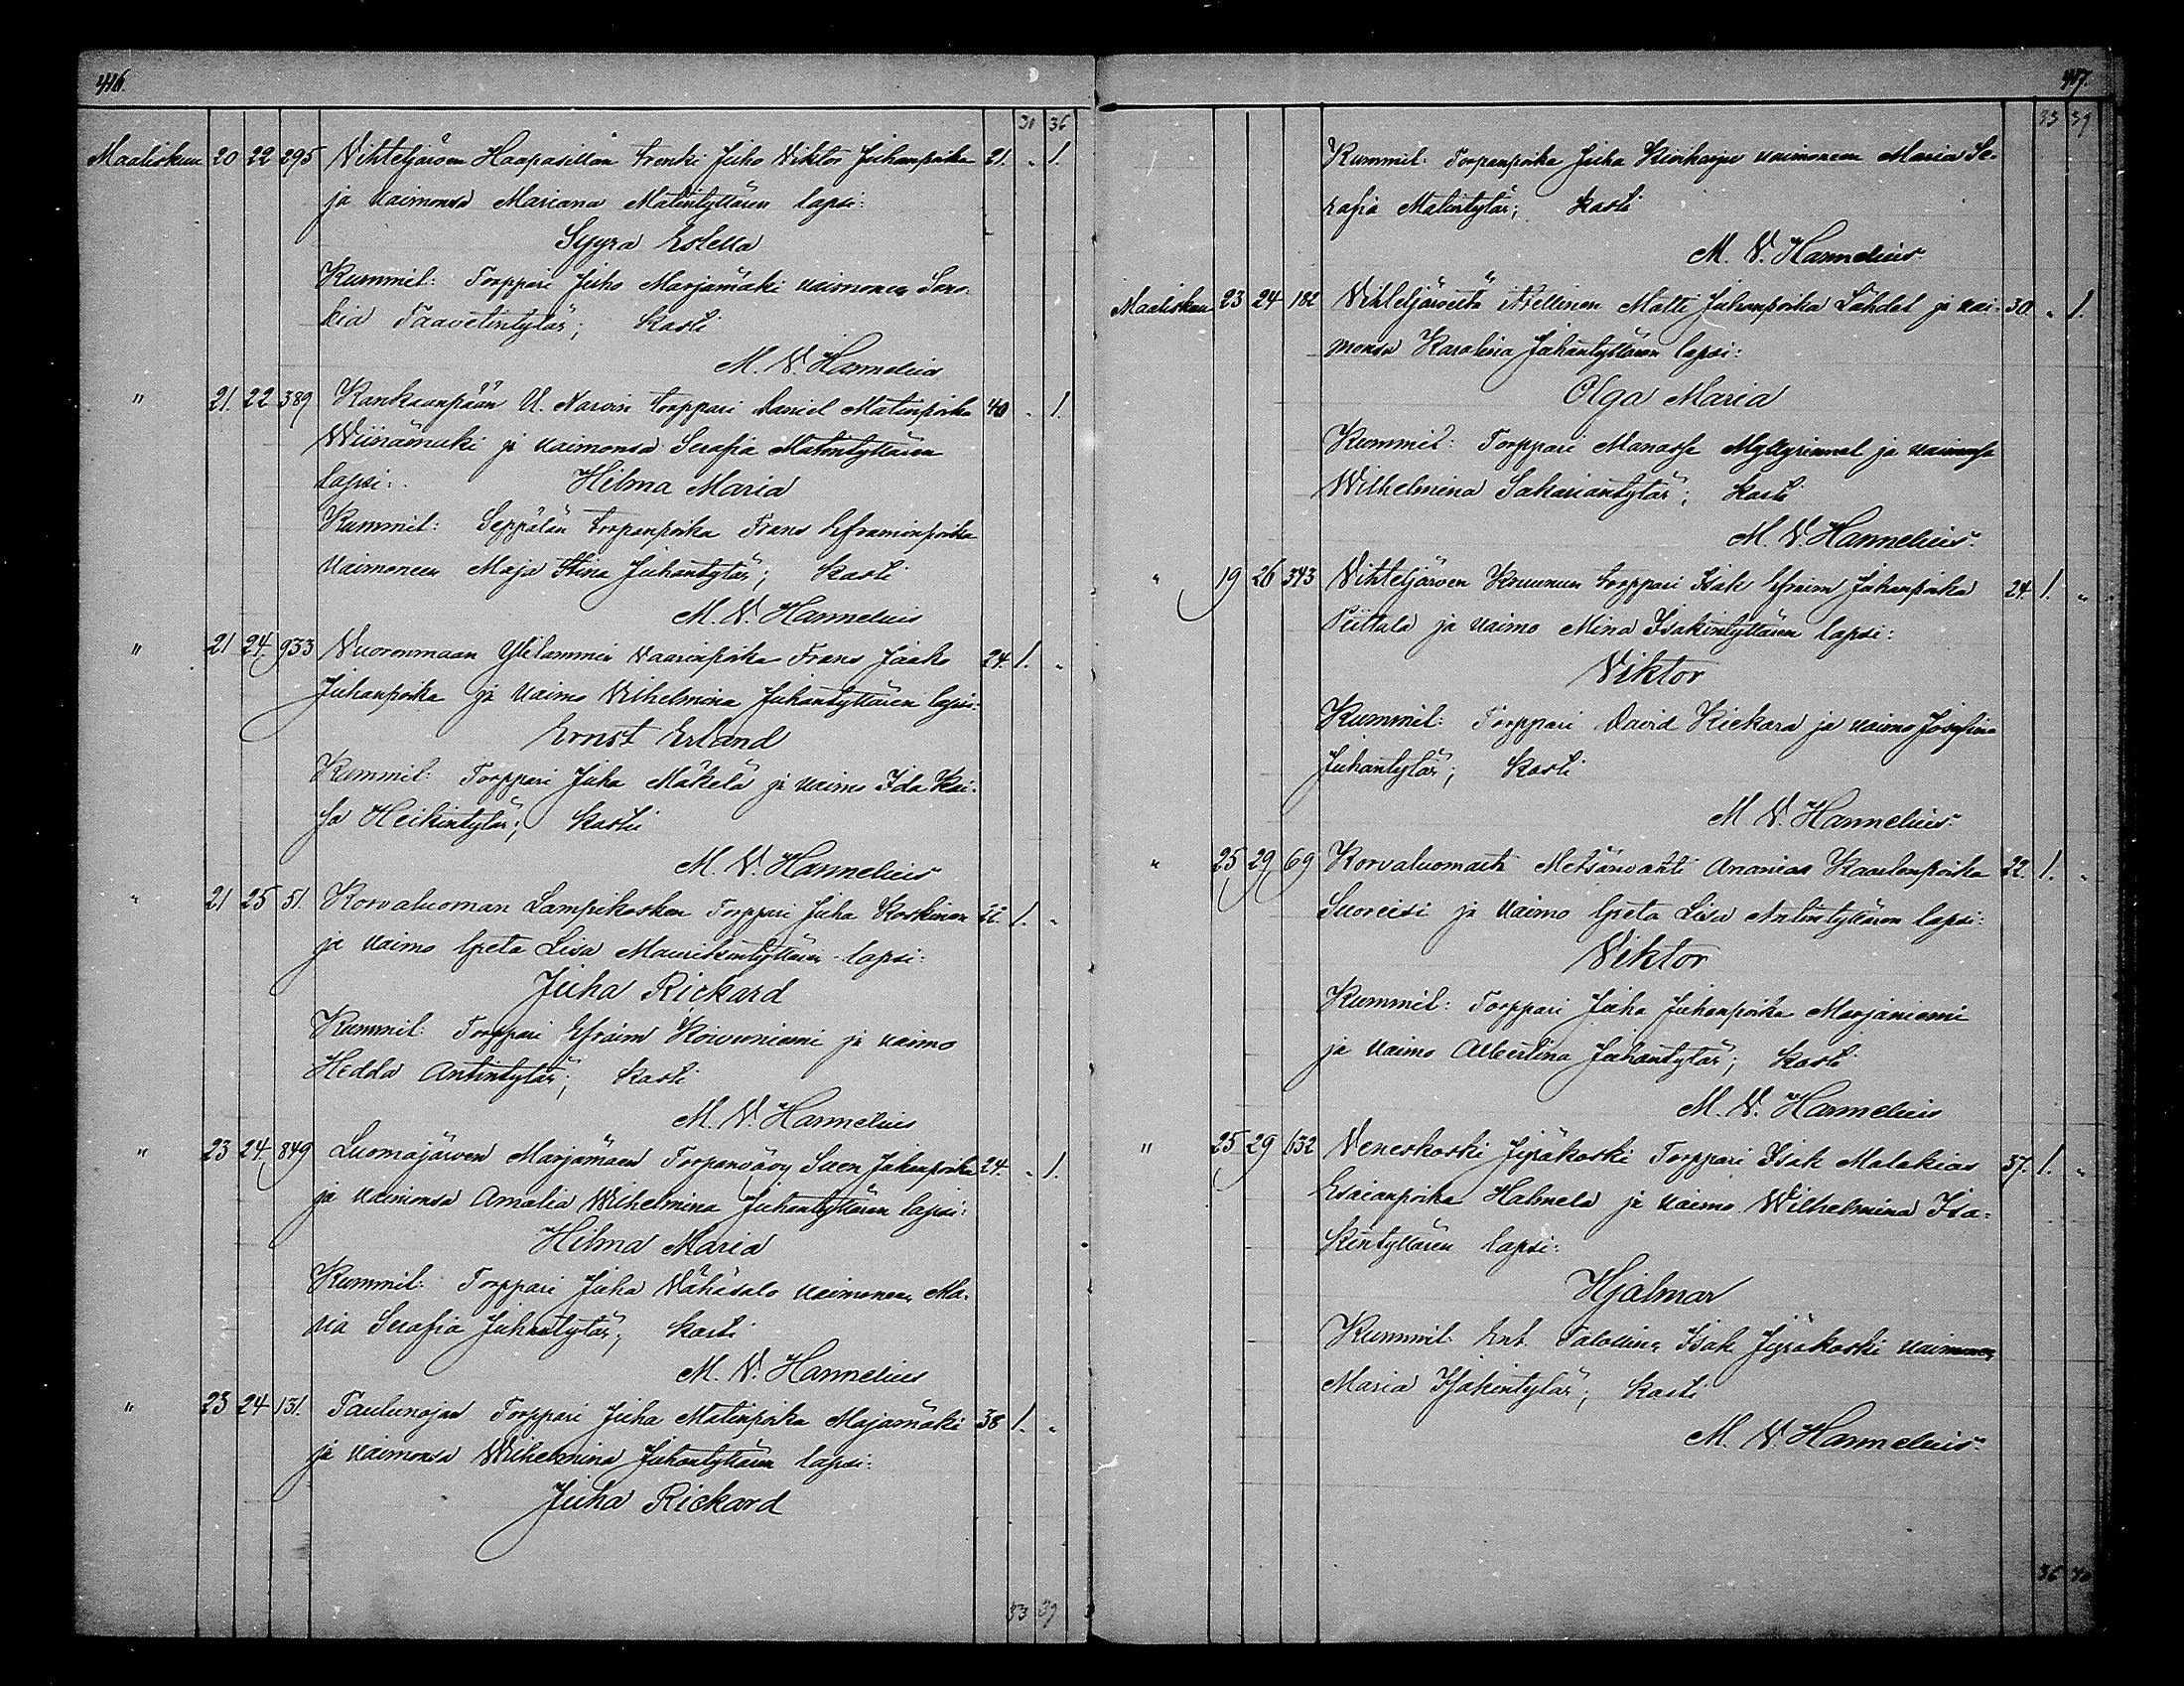 416.
31 36
Maaliskuu 20 22 295 Vihteljärven Haapasillan trenki Juho Viktor Juhanpoika 21. " 1.
ja vaimonsa Mariana Matintyttären lapsi:
Syyra Estella
Kummit: Torppari Juho Marjamäki vaimoneen
Taavetintytär; Kasti
M. V. Hannelius
" 21. 22 389 Kankaanpään U. Narvin torppari Daniel Matinpoika 40 " 1.
Wiinämäki ja vaimonsa Serafia Matintyttären
lapsi: Hilma Maria
Kummit: Seppälän torpanpoika Frans Eframinpoika
vaimoneen Maja Stina Juhantytär; Kasti
M. V. Hannelius
" 21 24 933 Vuorenmaan Ylilammin Vaarinpoika Frans Jaako 24. 1. "
Juhanpoika ja vaimo Wilhelmina Juhantyttären lapsi:
Ernst Erland
Kummit: Torppari Juha Mäkelä ja vaimo Ida Kai-
sa Heikintytär; Kasti
M. V. Hannelius
" 21 25 51. Korvaluoman Lampikosken Torppari Juha Koskinen 22. 1. "
ja vaimo Greta Lisa Maurikintyttären lapsi:
Juha Rickard
Kummit: Torppari Efraim Koivuniemi ja vaimo
Hedda Antintytär; Kasti
M. V. Hannelius
" 23 24 849 Luomajärven Marjamäen Torpanvävy Juhanpoika 24. " 1.
ja vaimonsa Amalia Wilhelmina Juhantyttären lapsi:
Hilma Maria
Kummit: Torppari Juha Vähäsalo vaimoneen Ma-
ria Serafia Juhantytär; Kasti
M. V. Hannelius
" 23 24 131. Taulunojan Torppari Juha Matinpoika Majamäki 38 1. "
ja vaimonsa Wilhelmina Juhantyttären lapsi:
Juha Rickard
33 39
417.
33 39
Kummit: Torpanpoika Juha Kiviharju vaimoneen Maria Se-
rafia Matintytär; Kasti
M. V. Hannelius
Maaliskuu 23 24 182 Vihteljärveltä Itsellinen Matti Juhanpoika Lähdet ja vai- 30. " 1.
monsa Karolina Juhantyttären lapsi:
Olga Maria
Kummit: Torppari Manasse Myllyrinnet ja vaimonsa
Wilhelmina Sakariantytär; Kasti
M. V. Hannelius
" 19 26 343 Vihteljärven Kruunun torppari Isak Efraim Juhanpoika 24. 1. "
Piittala ja vaimo Mina Isakintyttären lapsi:
Viktor
Kummit: Torppari David Kiekara ja vaimo Josefina
Juhantytär; Kasti
M. V. Hannelius
" 25 29 69 Korvaluomasta Metsänvahti Ananias Kaarlonpoika 22. 1. "
ja vaimo Greta Lisa Antintyttären lapsi:
Viktor
Kummit: Torppari Juha Juhanpoika Marjaniemi
ja vaimo Albertina Juhantytär; Kasti
M. V. Hannelius
" 25 29 632 Veneskoski Jyräkoski Torppari Isak Malakias 37. 1. "
Esaianpoika Hahnela ja vaimo Wilhelmina Isa-
kintyttären lapsi:
Hjalmar
Kummit: Ent. Talollinen Isak Jyräkoski vaimoneen
Maria Isakintytär; Kasti
M. V. Hannelius
36 40